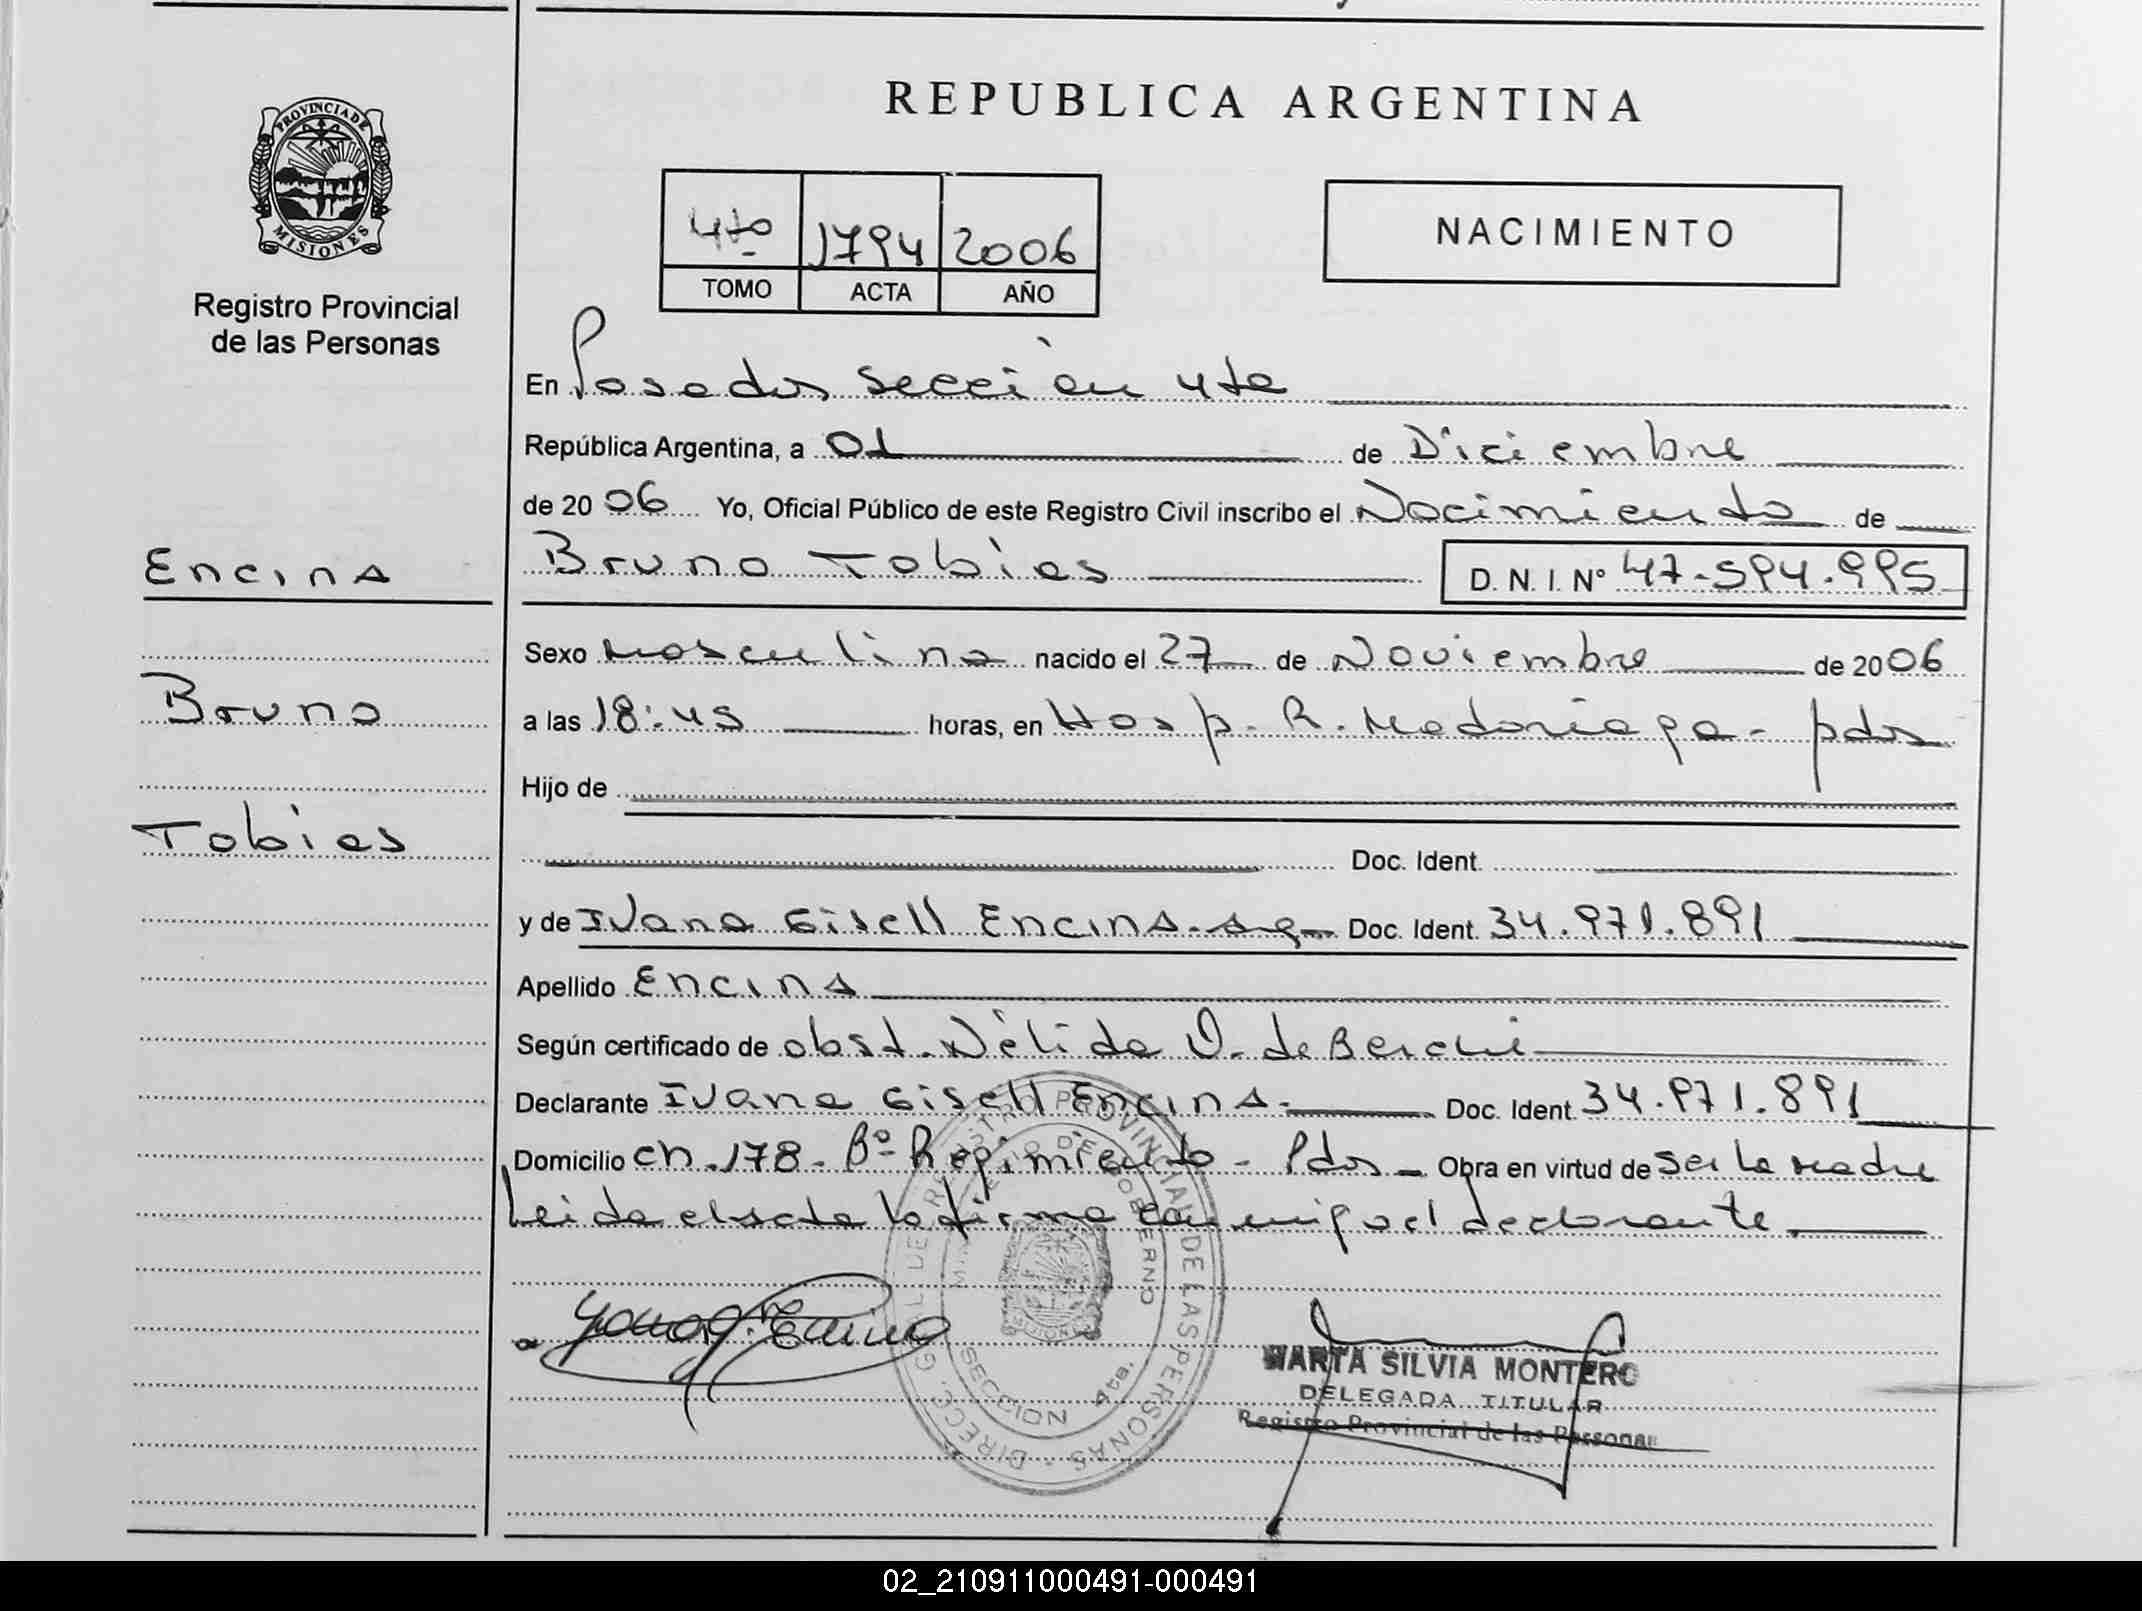 REPUBLICA ARGENTINA
PROVINCIA DE
MISIONES
Registro Provincial
de las Personas
4to 1794 2006
TOMO ACTA AÑO
NACIMIENTO
En Posadas Sección 4ta
República Argentina, a 01 de Diciembre
de 2006 Yo, Oficial Público de este Registro Civil inscribo el Nacimiento de
Encina
Bruno Tobias D. N. I. Nº 47.594.995
Sexo Masculino nacido el 27 de Noviembre de 2006
Bruno
a las 18:45 horas, en Hosp. R. Madariaga - pdas
Hijo de
Tobias
Doc. Ident.
y de Ivana Gisell Encina - Doc. Ident. 34.971.891
Apellido Encina
Según certificado de obst. Nélida O. de
Declarante Ivana Gisell Encina. Doc. Ident. 34.971.891
Domicilio ch. 178 - Bº Regimiento - Pdas - Obra en virtud de Ser la madre
Leida el acta la firma conmigo el declarante
DIRECC. GRAL. DE REGISTRO PROVINCIAL DE LAS PERSONAS
DE GOBIERNO
SECCION 4ta.
MARTA SILVIA MONTERO
DELEGADA TITULAR
Registro Provincial de las Personas
02_210911000491-000491